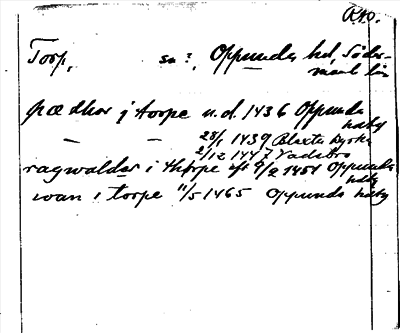 R40.
Torp, sn ?, Oppunda hd, Söder-
manl län
pædhor j torpe u.d. 1436 Oppunda
häby
— — 28/1 1439 Blexta kyrka
2/12 1447 Vadsbro
ragwalder i thorpe eft 9/2 1451 Oppunda
häby
wan i torpe 11/5 1465 Oppunda häby